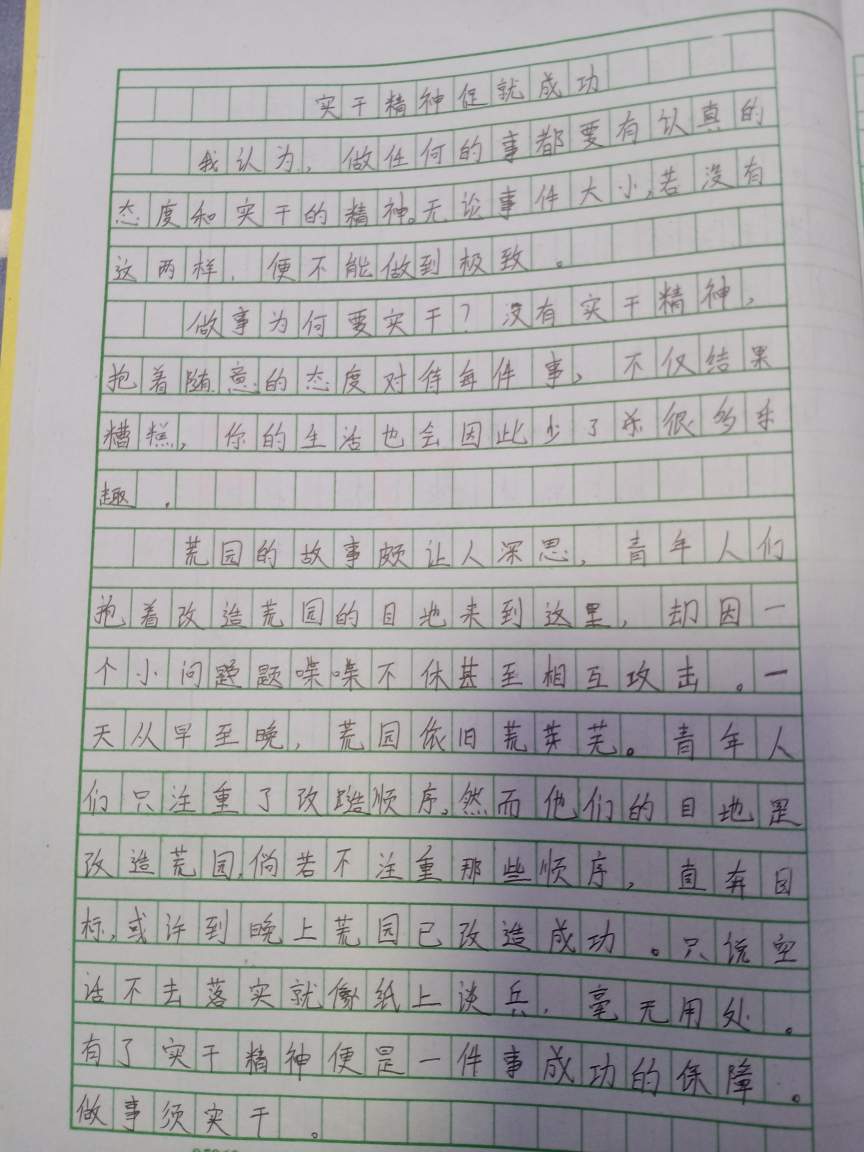 实干精神促就成功
我认为，做任何的事都要有认真的
态度和实干的精神。无论事件大小，若没有
这两样，便不能做到极致。
做事为何要实干？没有实干精神，
抱着随意的态度对待每件事，不仅结果
糟糕，你的生活也会因此少了很多乐
趣。
荒园的故事颇让人深思，青年人们
抱着改造荒园的目地来到这里，却因一
个小问题喋喋不休甚至相互攻击。一
天从早至晚，荒园依旧荒芜。青年人
们只注重了改造顺序，然而他们的目地是
改造荒园，倘若不注重那些顺序，直奔目
标，或许到晚上荒园已改造成功。只说空
话不去落实就像纸上谈兵，毫无用处。
有了实干精神便是一件事成功的保障。
做事须实干。